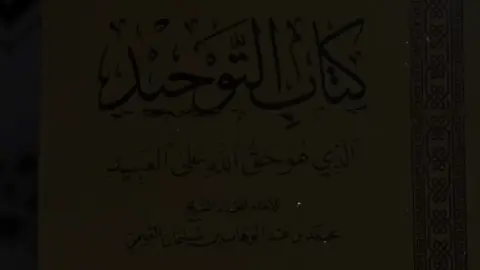 كتاب التوحيد
الذي هو حق الله على العبيد
محمد بن عبد الوهاب بن سليمان التميمي